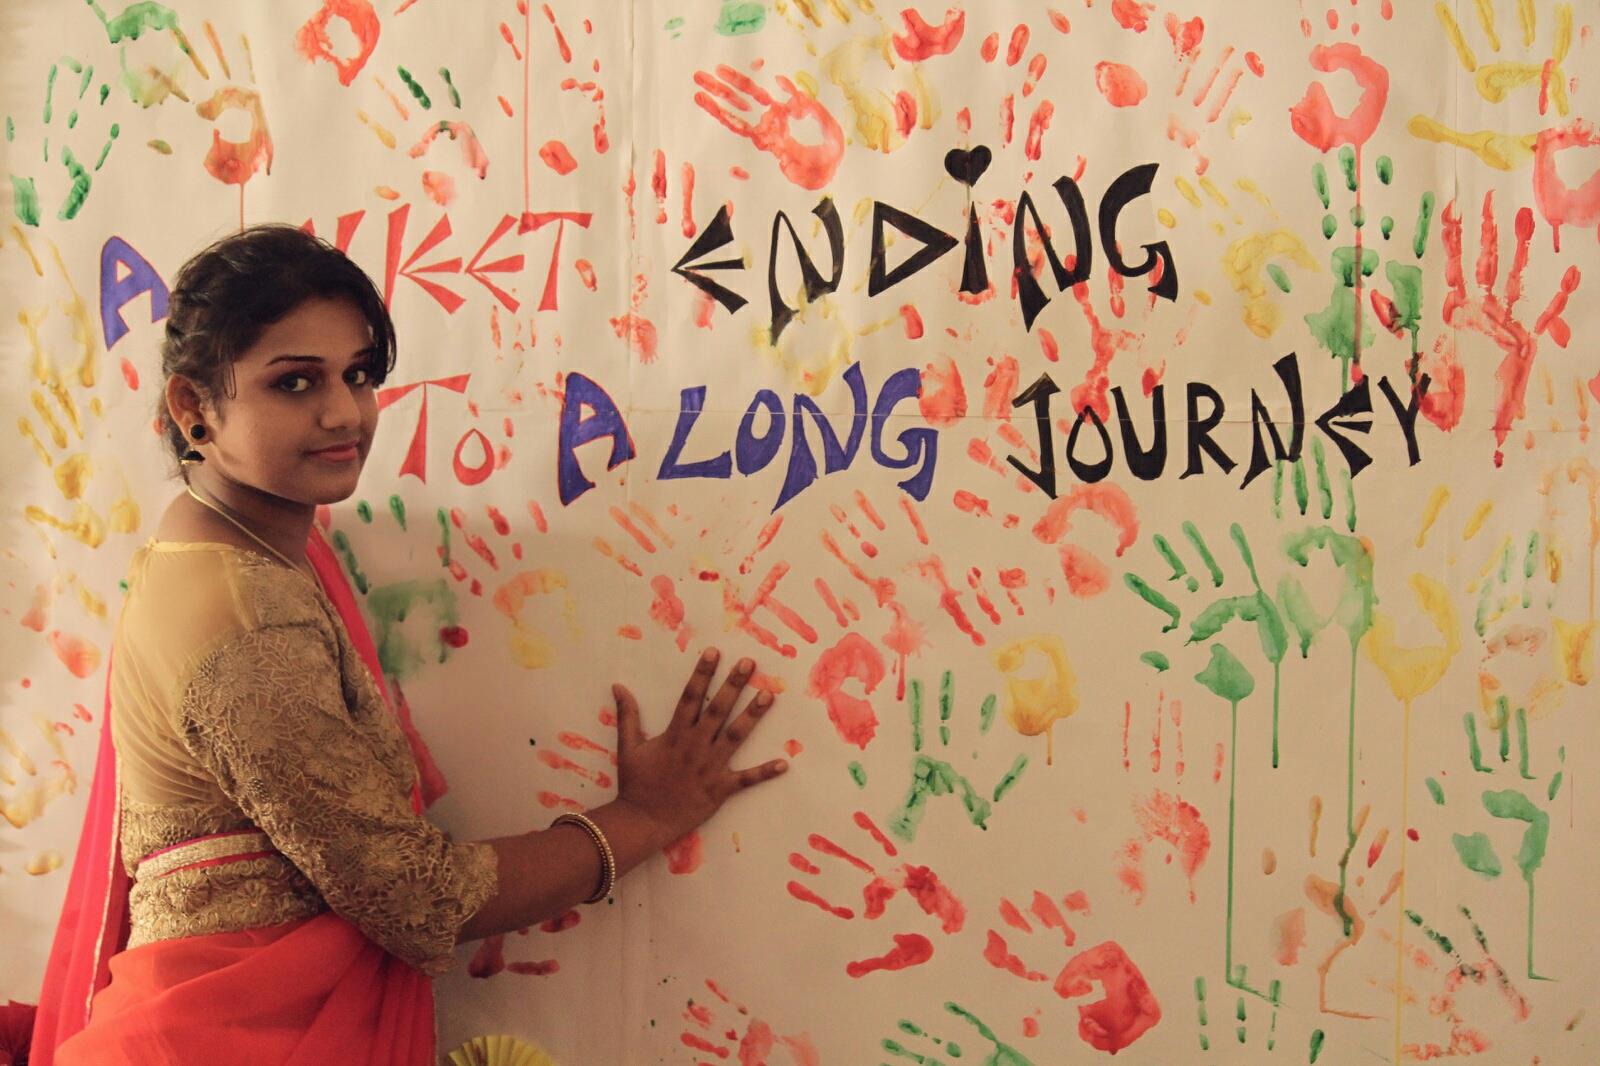 A WEET ENDING
TO A LONG JOURNEY